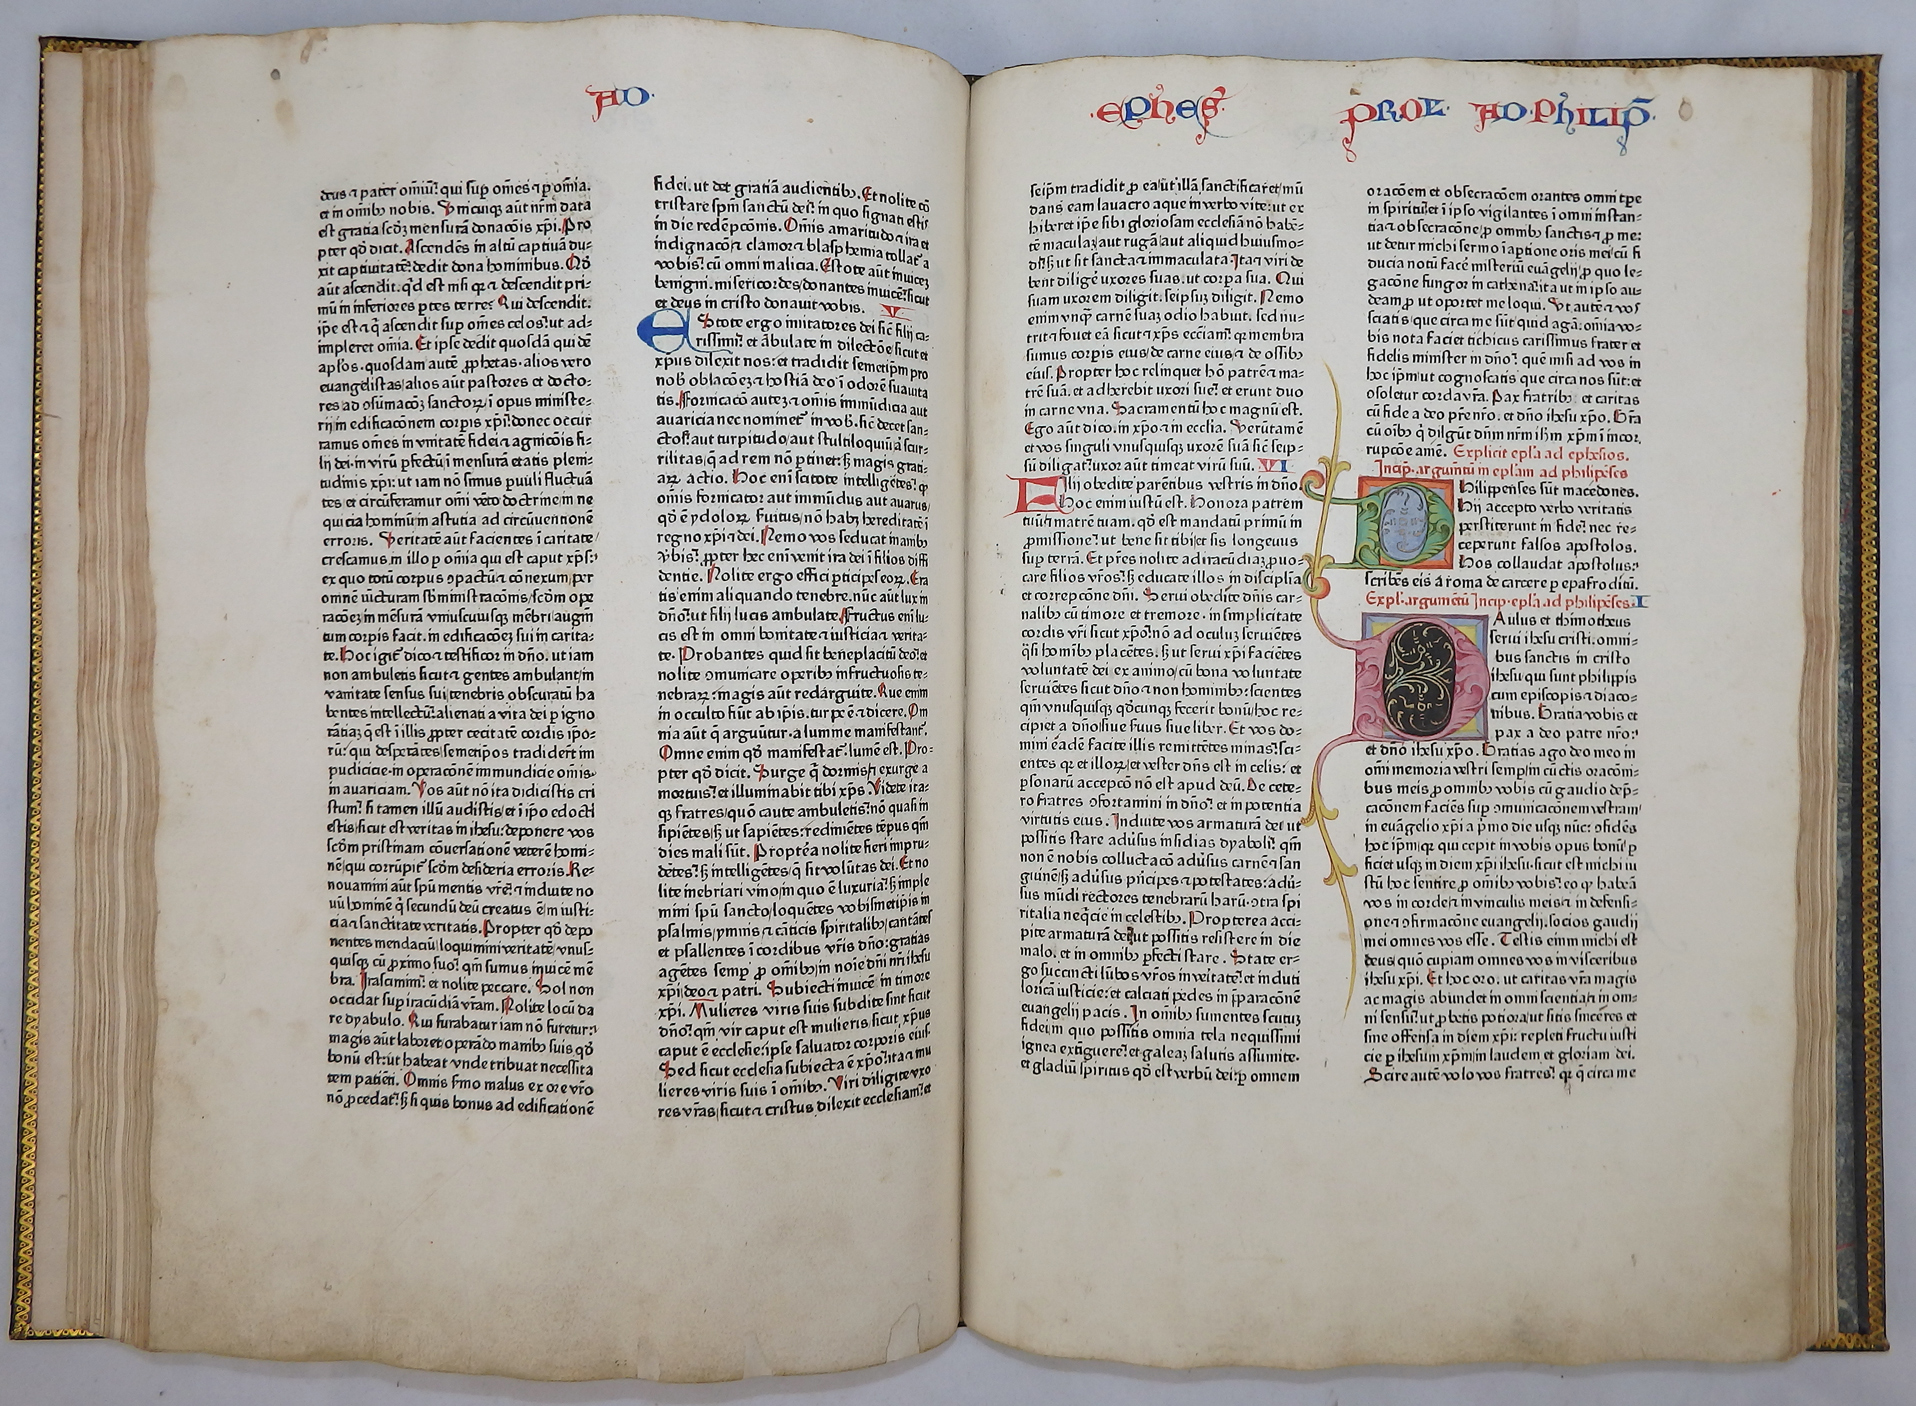 AD.
deus ⁊ pater om̄iū: qui sup om̄es ⁊ ꝑ om̄ia.
et in omnibꝫ nobis. Vnicuiqꝫ aūt nr̄m data
est gratia scd̄ꝫ mensurā donac̄ois xp̄i. Pro
pter qd̄ dicit. Ascendēs in altū captiuā du⸗
xit captiuitatē: dedit dona hominibus. Qd̄
aūt ascendit. qd est nisi qꝛ ⁊ descendit pri⸗
mū in inferiores ꝑtes terre: Qui descendit.
ip̄e est ⁊ q̄ ascendit sup om̄es celos: ut ad⸗
impleret om̄ia. Et ipse dedit quosdā qui dē
apl̄os. quosdam autē ꝓphetas. alios vero
euangelistas/alios aūt pastores et docto⸗
res ad ꝯsūmac̄oꝫ sanctoꝝ/ī opus ministe⸗
rij in edificac̄onem corpis xp̄i: donec occur
ramus om̄es in vnitatē fidei ⁊ agnic̄ois fi⸗
lij dei. in virū ꝑfectū/ī mensurā etatis pleni⸗
tudinis xp̄i: ut iam nō simus ꝑuuli fluctuā
tes et circūferamur om̄i vēto doctrine in ne
quicia hominū/in astutia ad circūuentionē
erroris. Veritatē aūt facientes ī caritate/
crescamus in illo ꝑ omnia qui est caput xp̄s:
ex quo totū corpus ꝯpactū ⁊ cōnexum/per
omnē iūcturam sb̄ministrac̄ois/scd̄m ope
rac̄oeꝫ in mēsurā vniuscuiusqꝫ mēbri/augm̄
tum corpis facit. in edificac̄oeꝫ sui in carita⸗
te. Hoc igit dico ⁊ testificor in dn̄o. ut iam
non ambuletis sicut ⁊ gentes ambulant/in
vanitate sensus sui/tenebris obscuratū ha
bentes intellectū: alienati a vita dei p igno
rātiaꝫ q̄ est ī illis ꝓpter cecitatē cordis ip̄o⸗
rū: qui desperātes/semetip̄os tradider̄t im
pudicicie. in operac̄onē immundicie om̄is.
in auariciam. Vos aūt nō ita didicistis cri
stum: si tamen illū audistis/et ī ip̄o edocti
estis/sicut est veritas in ihesu: deponere vos
scd̄m pristinam cōuersationē veterē homi⸗
nē/qui corrūpit̄ scd̄m desideria erroris. Re⸗
nouamini aūt spū mentis vr̄e: ⁊ induite no
uū hominē q̄ secundū deū creatus ē/in iusti⸗
cia ⁊ sanctitate veritatis. Propter qd̄ depo
nentes mendaciū/loquimini veritatē/vnus⸗
quisqꝫ cū ꝓximo suo: qm̄ sumus inuicē mē
bra. Irascimini: et nolite peccare. Sol non
occidat sup iracūdiā vr̄am. Nolite locū da
re dyabulo. Qui furabatur iam nō furetur:
magis aūt laboret/operādo manibꝫ suis qd̄
bonū est: ut habeat vnde tribuat necessita
tem patiēti. Omnis s̄mo malus ex ore vr̄o
nō ꝓcedat: sꝫ si quis bonus ad edificationē
fidei. ut det gratiā audientibꝫ. Et nolite cō
tristare spm̄ sanctū dei: in quo signati estis
in die redēpcōnis. Om̄is amaritudo ⁊ ira et
indignac̄o/⁊ clamor ⁊ blasphemia tollat̄ a
vobis: cū omni malicia. Estote aūt inuiceꝫ
benigni. misericordes/donantes inuicē: sicut
et deus in cristo donauit vobis. V
Estote ergo imitatores dei sic̄ filij ca⸗
rissimi: et ābulate in dilectōe/sicut et
xpūs dilexit nos: et tradidit semetip̄m pro
nob̄ oblac̄oeꝫ ⁊ hostiā deo/ī odorē suauita
tis. Fornicac̄o auteꝫ ⁊ om̄is immūdicia aut
auaricia nec nominet̄ in vob. sic̄ decet san⸗
ctos: aut turpitudo/aut stultiloquiū/aut scur⸗
rilitas/q̄ ad rem nō ꝑtinet: sꝫ magis grati⸗
aꝝ actio. Hoc eni scitote intelligētes: ꝙ
om̄is fornicator aut immūdus aut auarus/
qd̄ ē ydoloꝝ seruitus/nō habꝫ hereditatē ī
regno xp̄i ⁊ dei. Nemo vos seducat inanibꝫ
v̄bis: ꝓpter hec eni venit ira dei ī filios diffi
dentie. Nolite ergo effici ꝑticipes eoꝝ. Era
tis enim aliquando tenebre. nūc aūt lux in
dn̄o: ut filij lucis ambulate. Fructus eni lu⸗
cis est in omni bonitate ⁊ iusticia ⁊ verita⸗
te. Probantes quid sit beneplacitū deo: et
nolite ꝯmunicare operibꝫ infructuosis te⸗
nebraꝝ: magis aūt redarguite. Que enim
in occulto fiūt ab ip̄is. turpe ē ⁊ dicere. Om
nia aūt q̄ arguūtur. a lumine manifestant̄.
Omne enim qd̄ manifestat̄. lumē est. Pro⸗
pter qd̄ dicit. Surge q̄ dormis/⁊ exurge a
mortuis: et illuminabit tibi xp̄s. Videte ita⸗
qꝫ fratres/quō caute ambuletis: nō quasi in
sipiētes/sꝫ ut sapiētes: redimētes tēpus qm̄
dies mali sūt. Proptēa nolite fieri impru⸗
dētes: sꝫ intelligētes/q̄ sit volūtas dei. Et no
lite inebriari vino/in quo ē luxuria: sꝫ imple
mini spū sancto/loquētes vobismetipis in
psalmis/ymnis ⁊ cāticis spiritalibꝫ/cantātes
et psallentes ī cordibus vr̄is dn̄o: gratias
agētes semp ꝓ om̄ibꝫ/in noīe dn̄i nr̄i ihesu
xp̄i/deo ⁊ patri. Subiecti inuicē in timore
xp̄i. Mulieres viris suis subdite sint sicut
dn̄o: qm̄ vir caput est mulieris/sicut xpūs
caput ē ecclesie: ip̄se saluator corporis eius.
Sed sicut ecclesia subiecta ē xp̄o/ita ⁊ mu
lieres viris suis ī om̄ibꝫ. Viri diligite vxo
res vr̄as/sicut ⁊ cristus dilexit ecclesiam: et
.EPHES.
seip̄m tradidit ꝓ ea/ut illā sanctificaret/mū
dans eam lauacro aque in verbo vite: ut ex
hiberet ip̄e sibi gloriosam ecclesiā nō habē⸗
tē maculā/aut rugā/aut aliquid huiusmo⸗
di/sꝫ ut sit sancta ⁊ immaculata. Ita ⁊ viri de
bent diligē uxores suas. ut corpa sua. Qui
suam uxorem diligit. seipsuꝫ diligit. Nemo
enim vnqꝫ carnē suaꝫ odio habuit. sed nu⸗
trit ⁊ fouet eā sicut ⁊ xp̄s eccl̄iam: qꝛ membra
sumus corpis eius/de carne eius/⁊ de ossibꝫ
eius. Propter hoc relinquet hō patrē ⁊ ma⸗
trē suā. et adherebit uxori sue: et erunt duo
in carne vna. Sacramentū hoc magnū est.
Ego aūt dico. in xp̄o ⁊ in ecclīa. Verūtamē
et vos singuli vnusquisqꝫ uxorē suā sic̄ seip⸗
sū diligat: uxor aūt timeat virū suū. VI
Filij obedite parentibus vestris in dn̄o.
Hoc enim iustū est. Honora patrem
tuū ⁊ matrē tuam. qd̄ est mandatū primū in
ꝓmissione: ut bene sit tibi/et sis longeuus
sup terrā. Et pr̄es nolite ad iracūdiaꝫ ꝓuo⸗
care filios vr̄os: sꝫ educate illos in disciplīa
et correpcōne dn̄i. Serui obedite dn̄is car⸗
nalibꝫ cū timore et tremore. in simplicitate
cordis vr̄i sicut xp̄o: nō ad oculuꝫ seruiētes
q̄si hominibꝫ placētes. sꝫ ut serui xp̄i faciētes
voluntatē dei ex animo/cū bona voluntate
seruiētes sicut dn̄o ⁊ non hominibꝫ: scientes
qm̄ vnusquisqꝫ qd̄cunqꝫ fecerit bonū/hoc re⸗
cipiet a dn̄o/siue suus siue liber. Et vos do⸗
mini eadē facite illis remittētes minas: sci⸗
entes qꝛ et illoꝝ/et vester dn̄s est in celis: et
ꝑsonarū accepcō nō est apud deū. De cete⸗
ro fratres ꝯfortamini in dn̄o: et in potentia
virtutis eius. Induite vos armaturā dei ut
possitis stare adūsus insidias dyaboli: qm̄
non ē nobis colluctacō adūsus carnē ⁊ san
guinē/sꝫ adūsus prīcipes ⁊ potestates: adū⸗
sus mūdi rectores tenebrarū harū. ꝯtra spi
ritalia neq̄cie in celestibꝫ. Propterea acci⸗
pite armaturā dei/ut possitis resistere in die
malo. et in omnibꝫ ꝑfecti stare. State er⸗
go succincti lūbos vr̄os in veritate: et induti
loricā iusticie: et calciati pedes in p̄paracōnē
euangelij pacis. In omibꝫ sumentes scutuꝫ
fidei/in quo possitis omnia tela nequissimi
ignea extīguere: et galeaꝫ salutis assumite.
et gladiū spiritus qd̄ est verbū dei: ꝑ omnem
PROL. AD PHILIP̄.
orac̄oēm et obsecrac̄oēm orantes omni tp̄e
in spiritu/et ī ipso vigilantes ī omni instan⸗
tia ⁊ obsecrac̄one ꝓ omibꝫ sanctis ⁊ ꝓ me:
ut detur michi sermo ī aptione oris mei/cū fi
ducia notū facē misteriū euāgelij/ꝓ quo le⸗
gac̄one fungor in cathena/ita ut in ipso au⸗
deam/ꝓ ut oportet me loqui. Vt autē ⁊ vos
sciatis/que circa me sūt/quid agā: om̄ia vo⸗
bis nota faciet tichicus carissimus frater et
fidelis minister in dn̄o: quē misi ad vos in
hoc ip̄m/ut cognoscatis que circa nos sūt: et
ꝯsoletur corda vr̄a. Pax fratribꝫ. et caritas
cū fide a deo pr̄e nr̄o. et dn̄o ihesu xp̄o. Gr̄a
cū oībꝫ q̄ diligūt dn̄m nr̄m ih̄m xp̄m ī incor
rupcōe amē. Explicit ep̄la ad ephesios.
Incip. argumētū in ep̄lam ad philipēses
Philippenses sūt macedones.
Hij accepto verbo veritatis
perstiterunt in fide: nec re⸗
ceperunt falsos apostolos.
Hos collaudat apostolus:
scribēs eis a roma de carcere p epafroditū.
Expl. argumētū Incip. ep̄la ad philipēses. I
PAulus et thimotheus
serui ihesu cristi. omni⸗
bus sanctis in cristo
ihesu qui sunt philippis
cum episcopis ⁊ diaco⸗
nibus. Gratia vobis et
pax a deo patre nr̄o:
et dn̄o ihesu xp̄o. Gratias ago deo meo in
om̄i memoria vestri semp/in cūctis orac̄oni⸗
bus meis ꝓ omnibꝫ vobis cū gaudio dep̄⸗
cac̄onem faciēs sup ꝯmunicac̄onem vestram
in euāgelio xp̄i a p̄mo die usqꝫ nūc: ꝯfidēs
hoc ip̄m/qꝛ qui cepit in vobis opus bonū/ꝑ
ficiet usqꝫ in diem xp̄i ihesu. sicut est michi iu
stū hoc sentire ꝓ om̄ibꝫ vobis: eo ꝙ habeā
vos in corde ⁊ in vinculis meis ⁊ in defensi⸗
one ⁊ ꝯfirmac̄one euangelij. socios gaudij
mei omnes vos esse. Testis enim michi est
deus/quō cupiam omnes vos in visceribus
ihesu xp̄i. Et hoc oro. ut caritas vr̄a magis
ac magis abundet in omni scientia/⁊ in om⸗
ni sensu: ut ꝓbetis potiora/ut sitis sinceres et
sine offensa in diem xp̄i: repleti fructu iusti
cie p ihesum xp̄m/in laudem et gloriam dei.
Scire autē volo vos fratres: qꝛ q̄ circa me